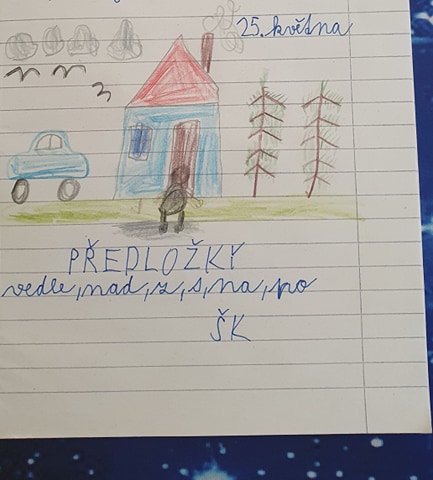 25. května
PŘEDLOŽKY
vedle, nad, z, s, na, po
ŠK